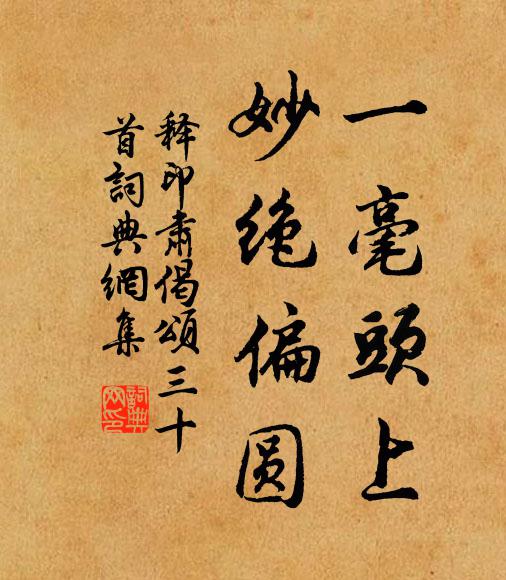 一毫頭上
妙绝偏圆
释印肅偈頌三十
首詞典網集
詞典网印